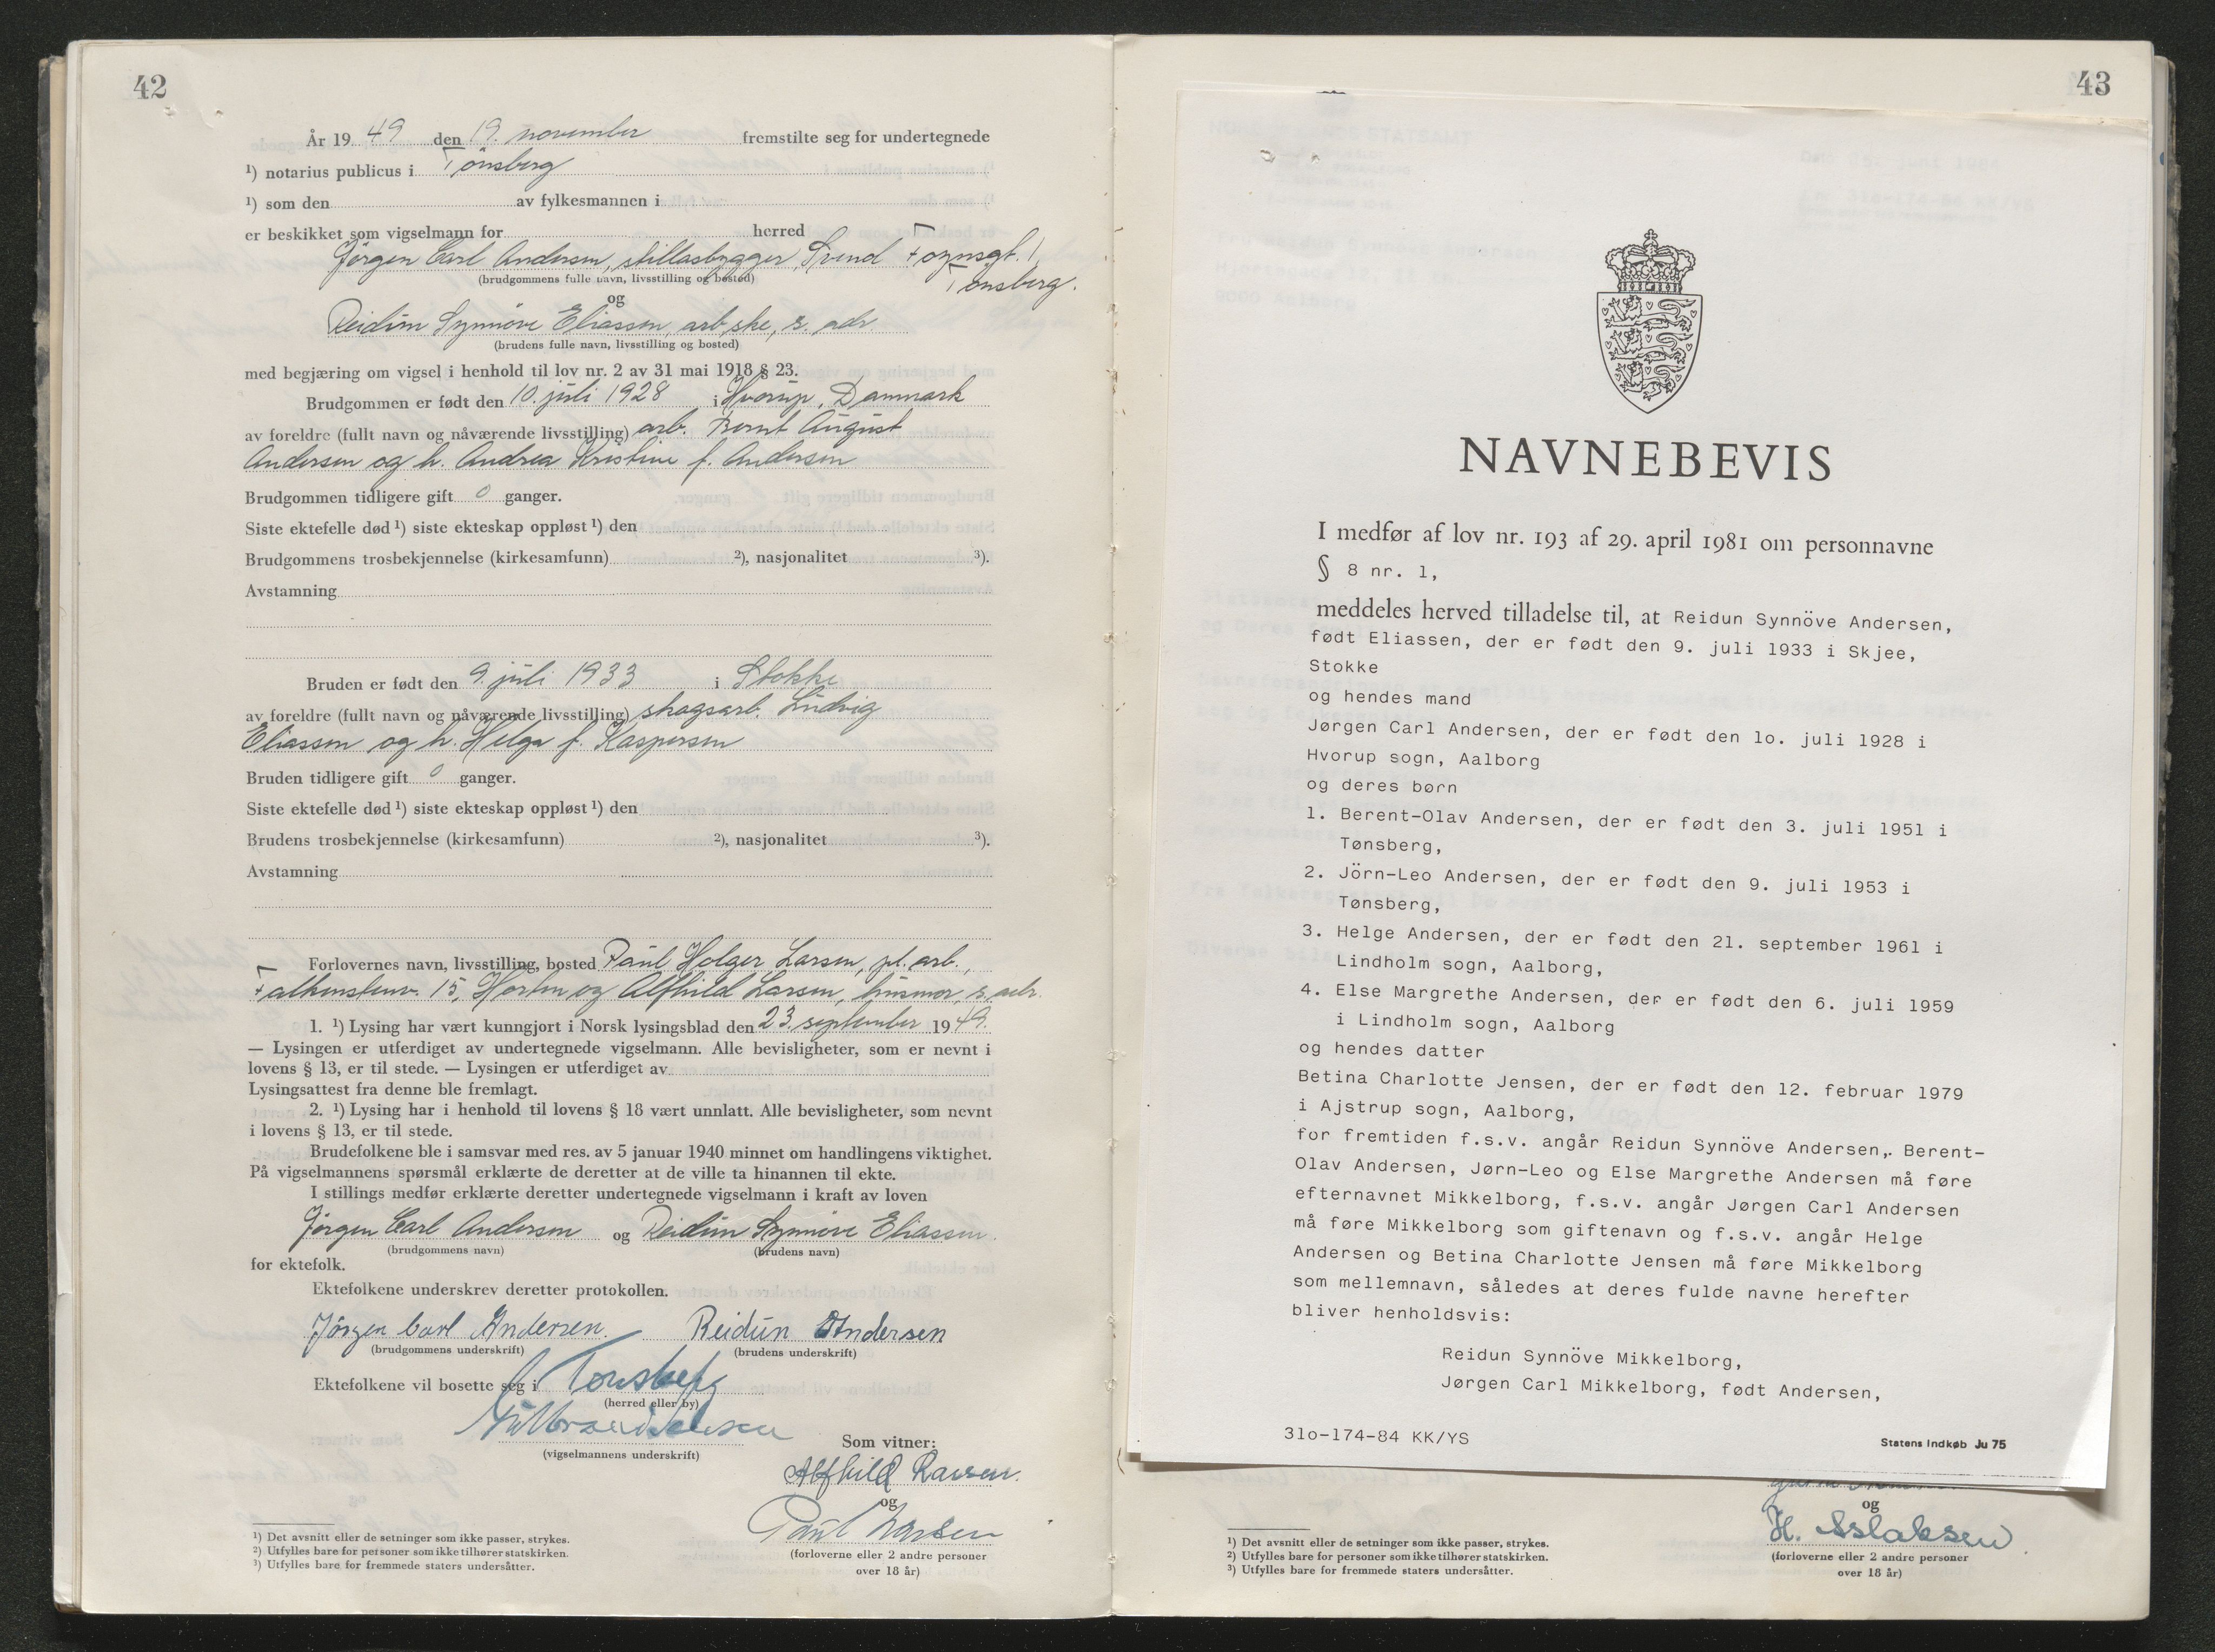 42
År 19 49 den 19. november fremstilte seg for undertegnede
¹) notarius publicus i Tønsberg
¹) som den av fylkesmannen i
er beskikket som vigselmann for herred
Jørgen Carl Andersen, stillasbygger, Svend Foynsgt. 1,
Tønsberg.
(brudgommens fulle navn, livsstilling og bosted)
og
Reidun Synnøve Eliassen, arb.ske, s. adr.
(brudens fulle navn, livsstilling og bosted)
med begjæring om vigsel i henhold til lov nr. 2 av 31 mai 1918 § 23.
Brudgommen er født den 10. juli 1928 i Hvorup, Danmark
av foreldre (fullt navn og nåværende livsstilling) arb. Bernt August
Andersen og h. Andrea Kristine f. Andersen
Brudgommen tidligere gift 0 ganger.
Siste ektefelle død ¹) siste ekteskap oppløst ¹) den
Brudgommens trosbekjennelse (kirkesamfunn) ²), nasjonalitet ³).
Avstamning
Bruden er født den 9. juli 1933 i Stokke
av foreldre (fullt navn og nåværende livsstilling) skogsarb. Ludvig
Eliassen og h. Helga f. Kaspersen
Bruden tidligere gift 0 ganger.
Siste ektefelle død ¹) siste ekteskap oppløst ¹) den
Brudens trosbekjennelse (kirkesamfunn) ²), nasjonalitet ³).
Avstamning
Forlovernes navn, livsstilling, bosted Paul Holger Larsen, pl. arb.,
Falkenstenv. 15, Horten og Alfhild Larsen, husmor, s. adr.
1. ¹) Lysing har vært kunngjort i Norsk lysingsblad den 23. september 19 49.
— Lysingen er utferdiget av undertegnede vigselmann. Alle bevisligheter, som er nevnt i
lovens § 13, er til stede. — Lysingen er utferdiget av
Lysingsattest fra denne ble fremlagt.
2. ¹) Lysing har i henhold til lovens § 18 vært unnlatt. Alle bevisligheter, som nevnt
i lovens § 13, er til stede.
Brudefolkene ble i samsvar med res. av 5 januar 1940 minnet om handlingens viktighet.
På vigselmannens spørsmål erklærte de deretter at de ville ta hinannen til ekte.
I stillings medfør erklærte deretter undertegnede vigselmann i kraft av loven
Jørgen Carl Andersen og Reidun Synnøve Eliassen.
(brudgommens navn) (brudens navn)
for ektefolk.
Ektefolkene underskrev deretter protokollen.
Jørgen Carl Andersen. Reidun Andersen
(brudgommens underskrift) (brudens underskrift)
Ektefolkene vil bosette seg i Tønsberg
(herred eller by)
(vigselmannens underskrift)
Som vitner:
Alfhild Larsen.
og
Paul Larsen
(forloverne eller 2 andre personer
over 18 år)
¹) Det avsnitt eller de setninger som ikke passer, strykes.
²) Utfylles bare for personer som ikke tilhører statskirken.
³) Utfylles bare for fremmede staters undersåtter.
43
NAVNEBEVIS
I medfør af lov nr. 193 af 29. april 1981 om personnavne
§ 8 nr. 1,
meddeles herved tilladelse til, at Reidun Synnöve Andersen,
født Eliassen, der er født den 9. juli 1933 i Skjee,
Stokke
og hendes mand
Jørgen Carl Andersen, der er født den lo. juli 1928 i
Hvorup sogn, Aalborg
og deres børn
1. Berent-Olav Andersen, der er født den 3. juli 1951 i
Tønsberg,
2. Jörn-Leo Andersen, der er født den 9. juli 1953 i
Tønsberg,
3. Helge Andersen, der er født den 21. september 1961 i
Lindholm sogn, Aalborg,
4. Else Margrethe Andersen, der er født den 6. juli 1959
i Lindholm sogn, Aalborg
og hendes datter
Betina Charlotte Jensen, der er født den 12. februar 1979
i Ajstrup sogn, Aalborg,
for fremtiden f.s.v. angår Reidun Synnöve Andersen,. Berent-
Olav Andersen, Jørn-Leo og Else Margrethe Andersen må føre
efternavnet Mikkelborg, f.s.v. angår Jørgen Carl Andersen
må føre Mikkelborg som giftenavn og f.s.v. angår Helge
Andersen og Betina Charlotte Jensen må føre Mikkelborg
som mellemnavn, således at deres fulde navne herefter
bliver henholdsvis:
Reidun Synnöve Mikkelborg,
Jørgen Carl Mikkelborg, født Andersen,
31o-174-84 KK/YS
Statens Indkøb Ju 75
og
H. Aslaksen
(forloverne eller 2 andre personer
over 18 år)
¹) Det avsnitt eller de setninger som ikke passer, strykes.
²) Utfylles bare for personer som ikke tilhører statskirken.
³) Utfylles bare for fremmede staters undersåtter.